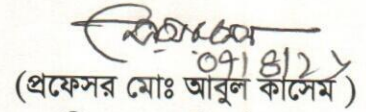 ০৭/৪/২৮
(প্রফেসর মোঃ আবুল কাসেম)